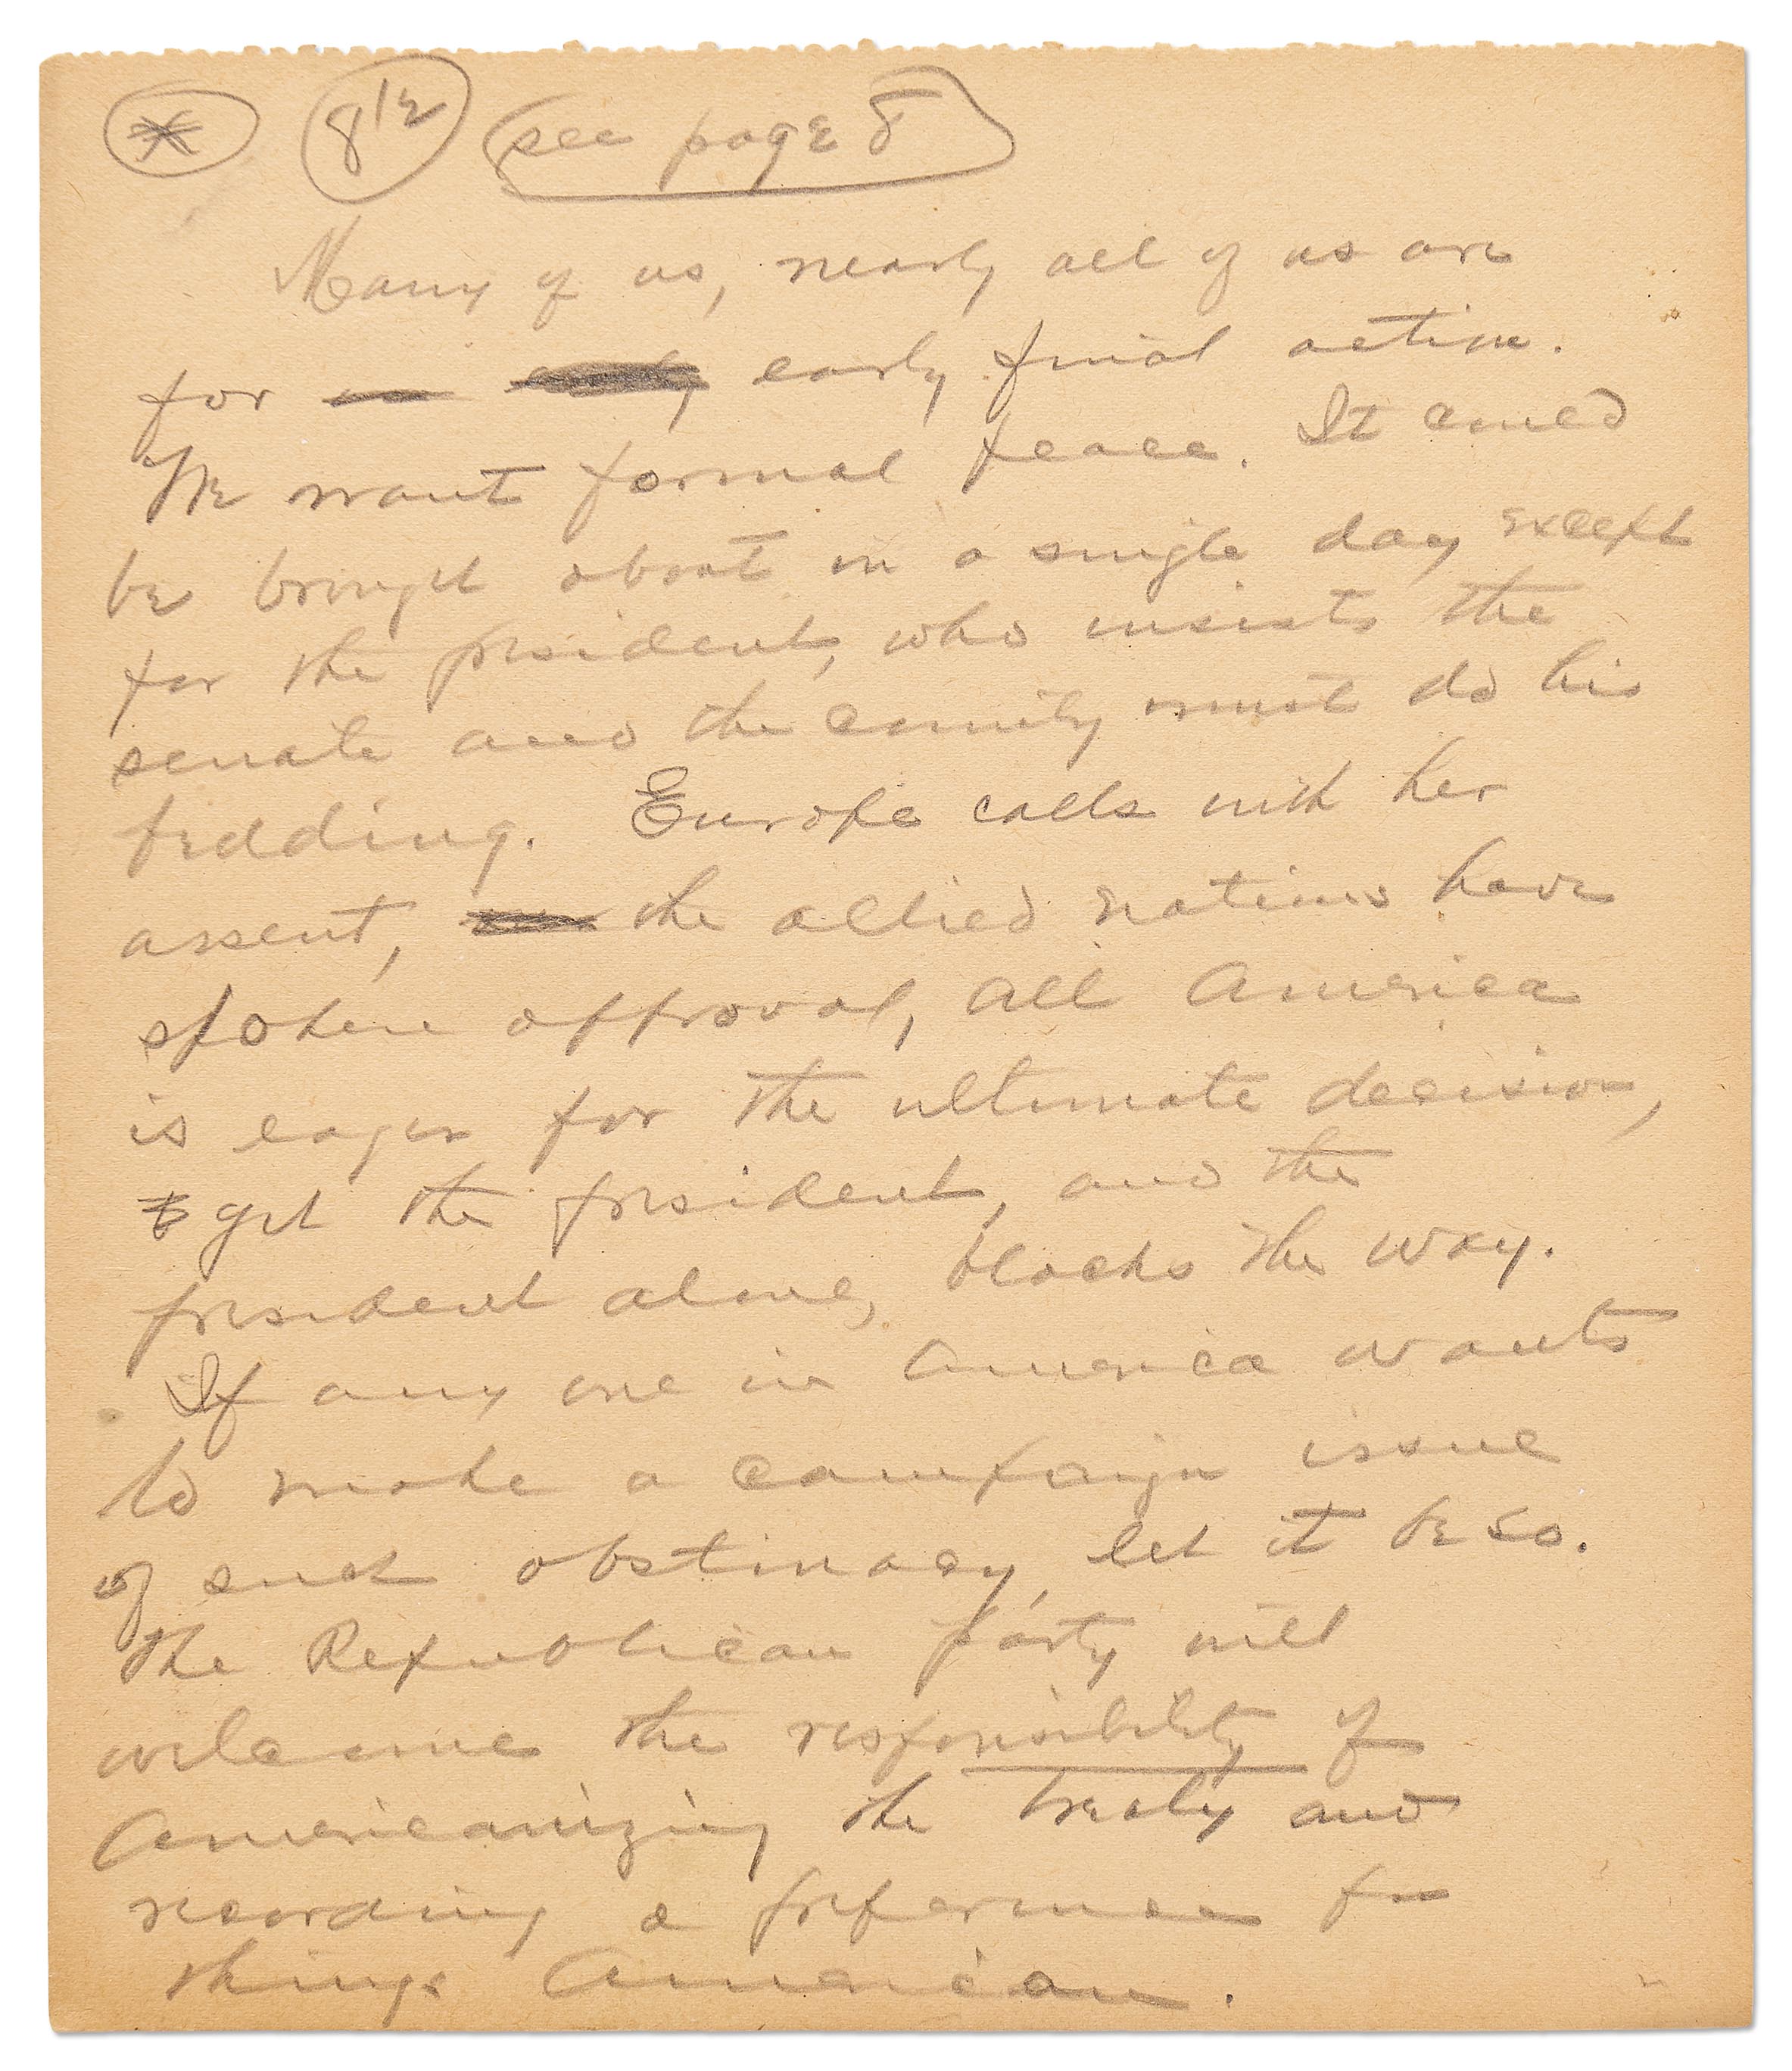 * 8 1/2 see page 8
Many of us, nearly all of us are
for early final action.
We want formal peace. It could
be brought about in a single day except
for the president, who insists the
senate and the country must do his
bidding. Europe calls with her
assent, the allied nations have
spoken approval, all America
is eager for the ultimate decision,
yet the president, and the
president alone, blocks the way.
If any one in America wants
to make a campaign issue
of such obstinacy, let it be so.
The Republican party will
welcome the responsibility of
Americanizing the treaty and
recording a preference for
things American.